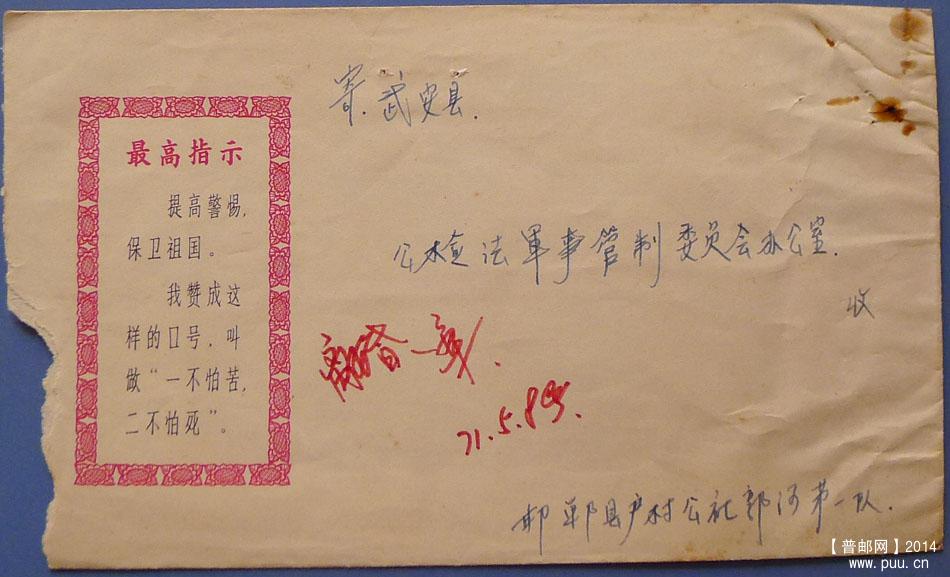 最高指示
提高警惕,
保卫祖国。
我赞成这
样的口号,叫
做“一不怕苦,
二不怕死”。
寄.武安县.
公检法軍事管制委员会办公室.
收
离婚一案.
71.5.8号.
邯郸县户村公社郭河第一队.
【普邮网】2014
www.puu.cn